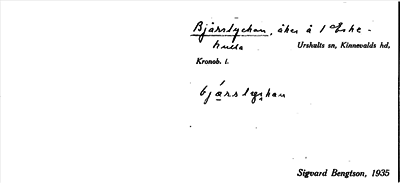 Bjärslyckan, åker å 1 Eske-
hulla Urshults sn, Kinnevalds hd,
Kronob. l.
bjárslykan
Sigvard Bengtson, 1935